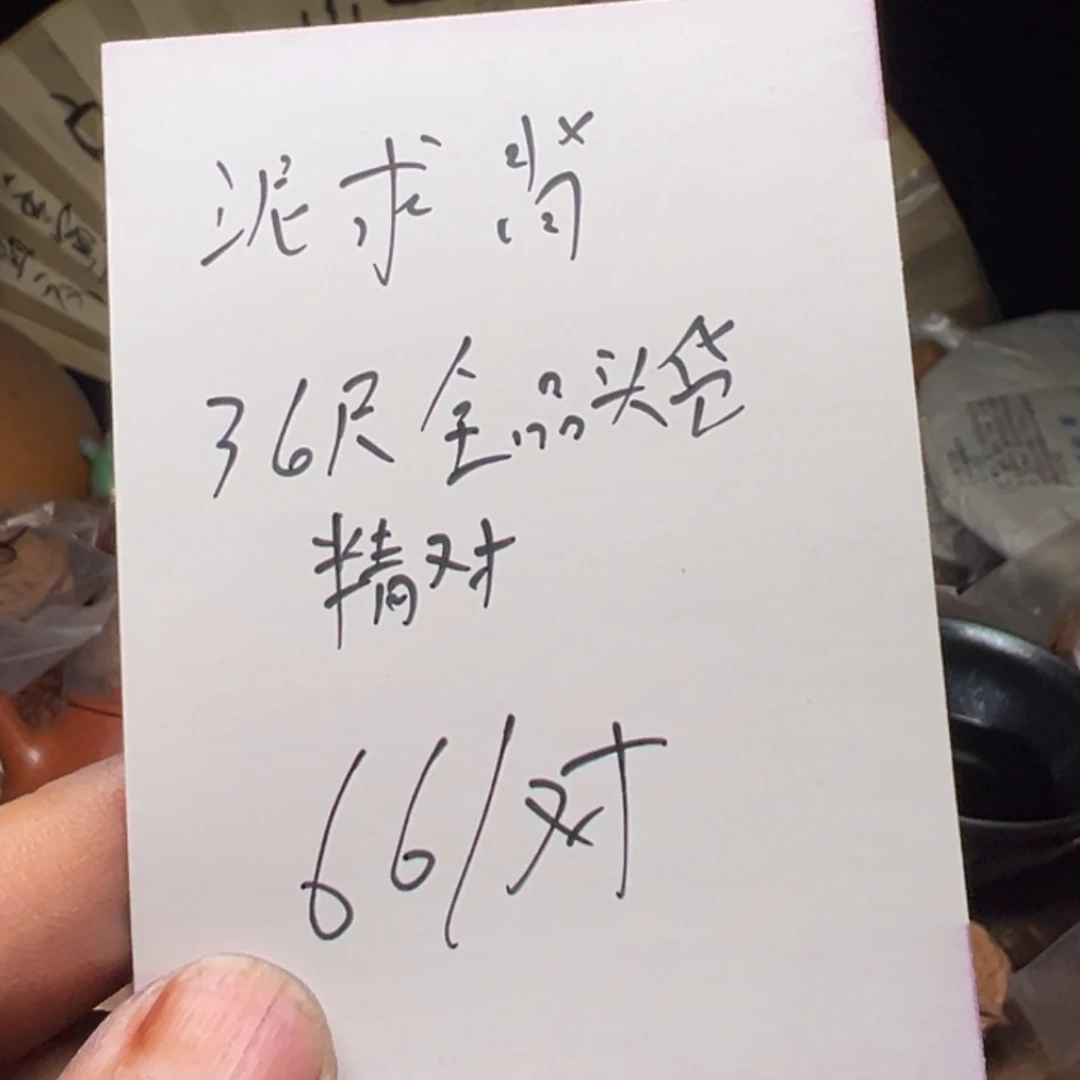 泥求肖
36尺全品头货
精对
66/对